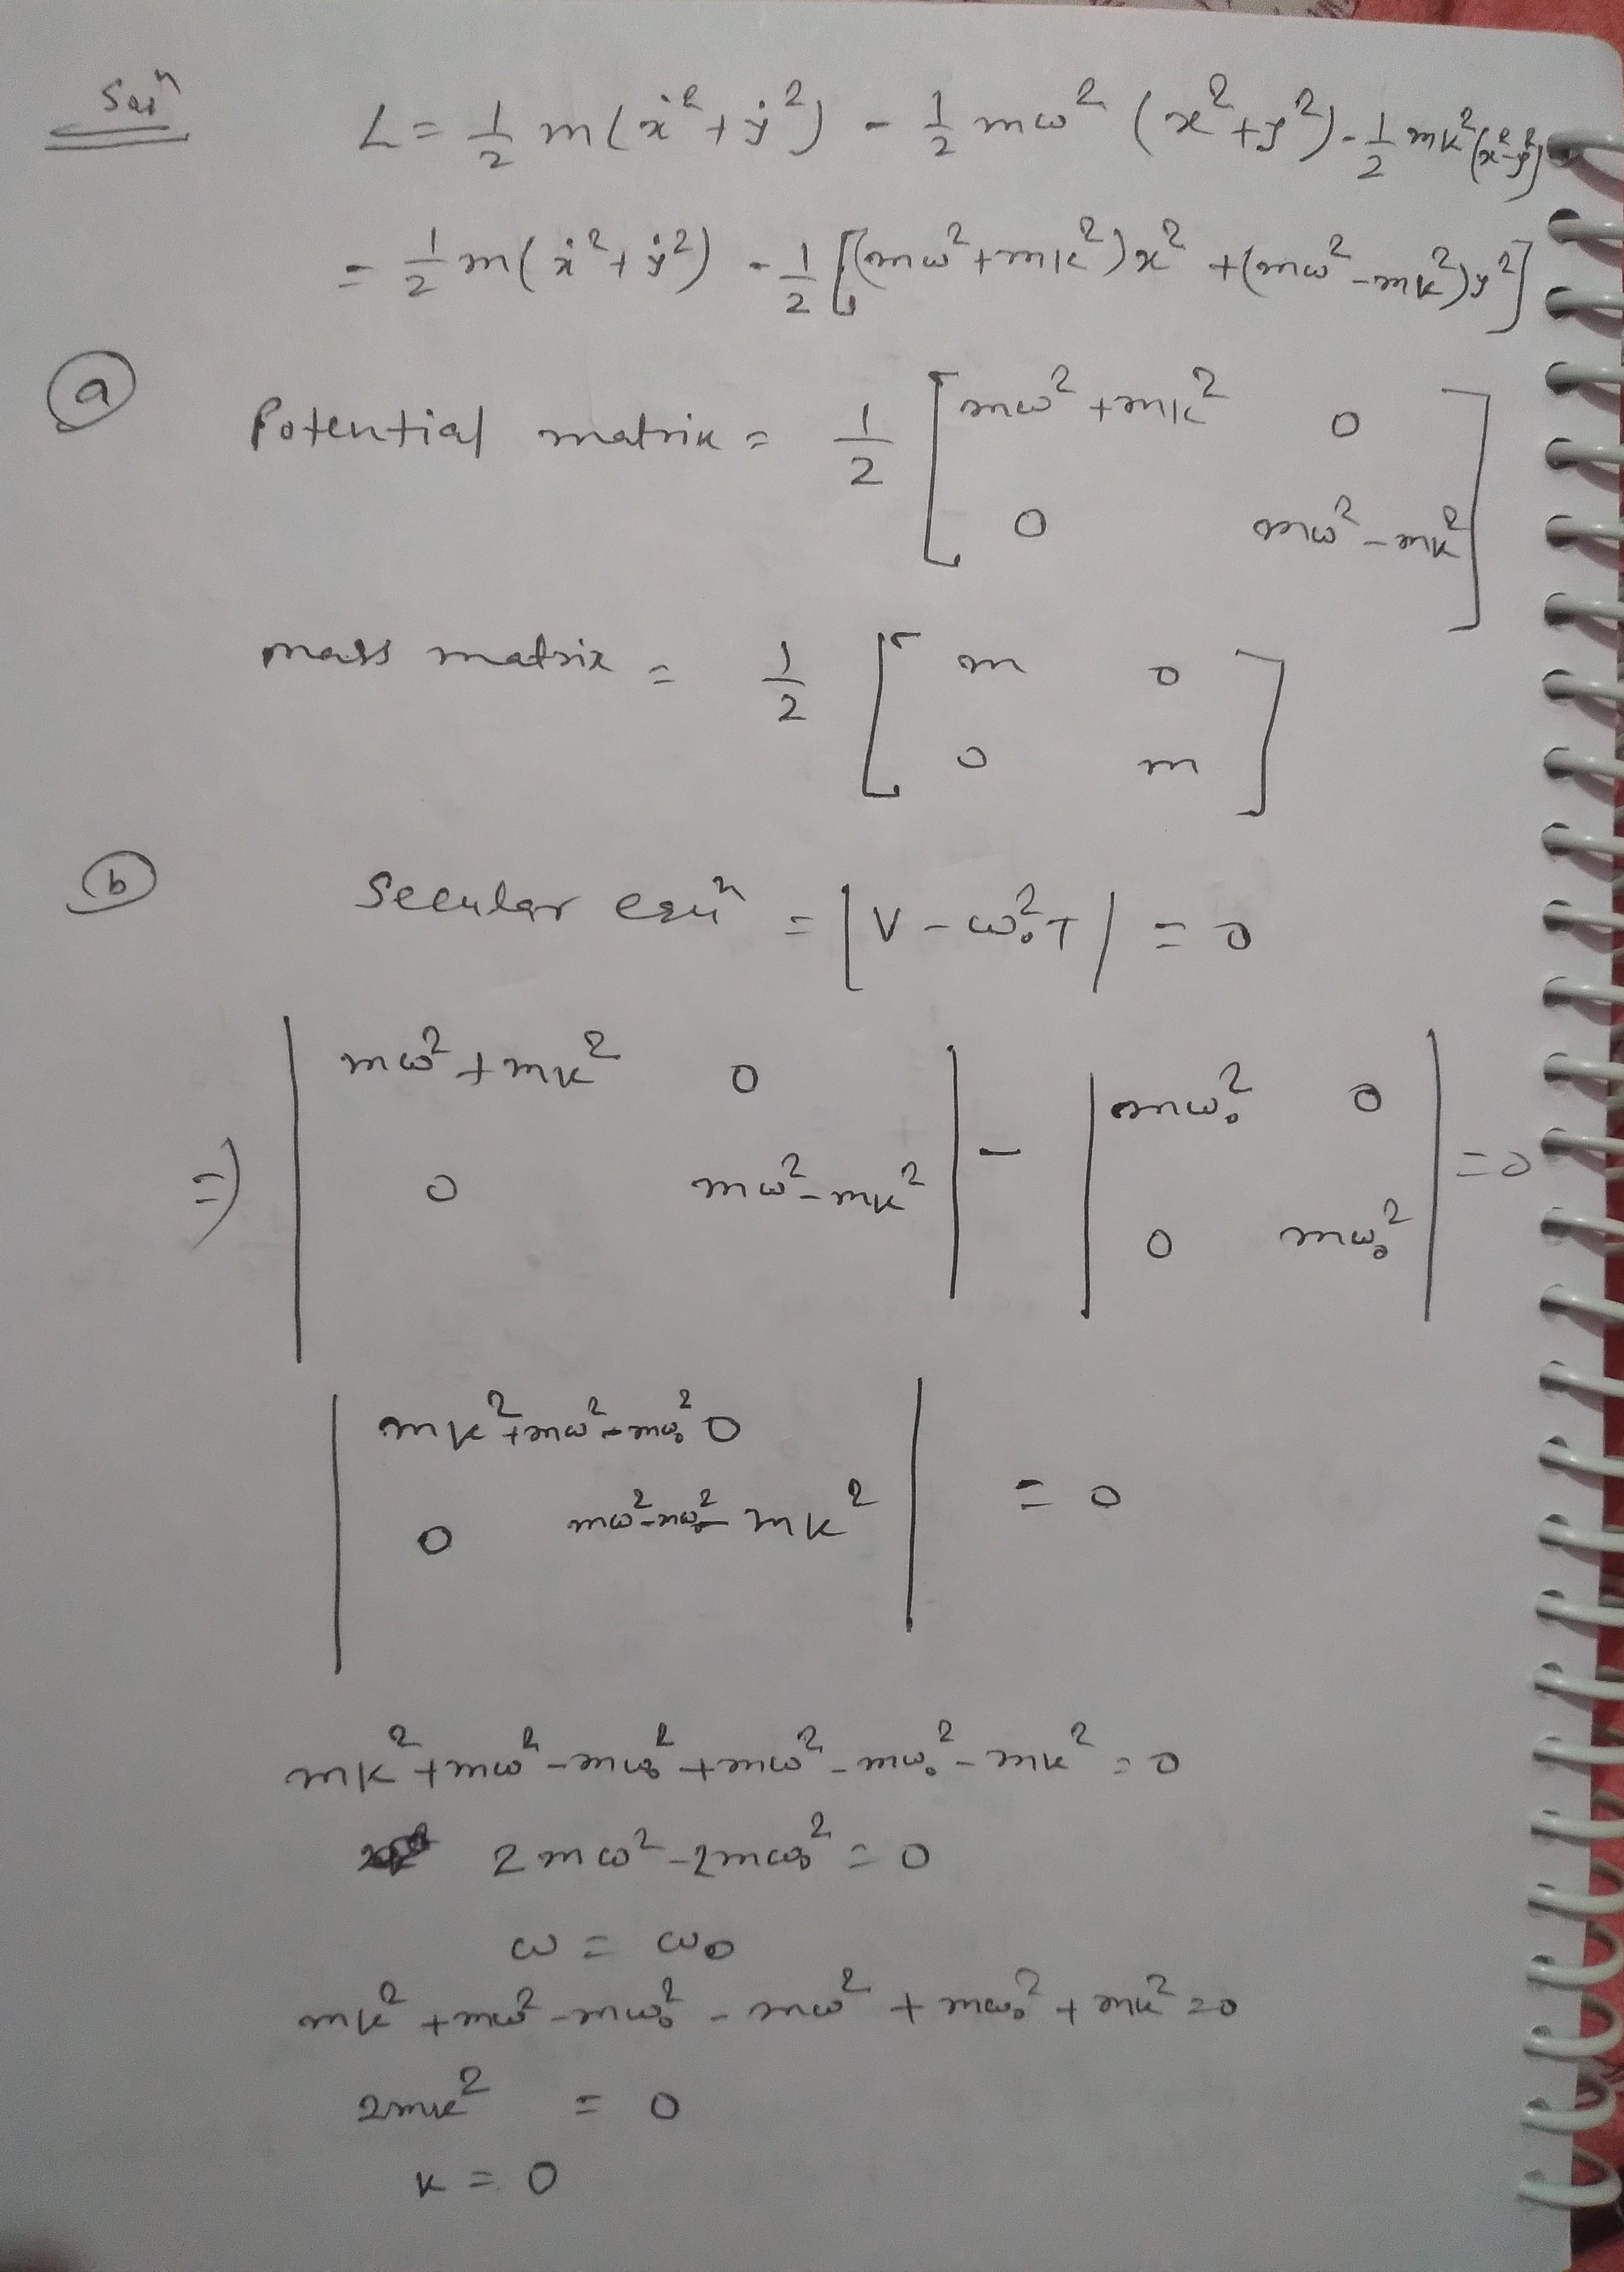 Solⁿ L = 1/2 m(ẋ² + ẏ²) - 1/2 mω² (x² + y²) - 1/2 mk² (x² - y²)
= 1/2 m(ẋ² + ẏ²) - 1/2 [(mω² + mk²)x² + (mω² - mk²)y²]
(a) Potential matrix = 1/2 [ mω² + mk² 0
0 mω² - mk² ]
mass matrix = 1/2 [ m 0
0 m ]
(b) Secular equⁿ = |V - ω₀²T| = 0
⇒ | mω² + mk² 0 | - | mω₀² 0 | = 0
| 0 mω² - mk² | | 0 mω₀² |
| mk² + mω² - mω₀² 0 | = 0
| 0 mω² - mω₀² - mk² |
mk² + mω² - mω₀² + mω² - mω₀² - mk² = 0
2mω² - 2mω₀² = 0
ω = ω₀
mk² + mω² - mω₀² - mω² + mω₀² + mk² = 0
2mk² = 0
k = 0